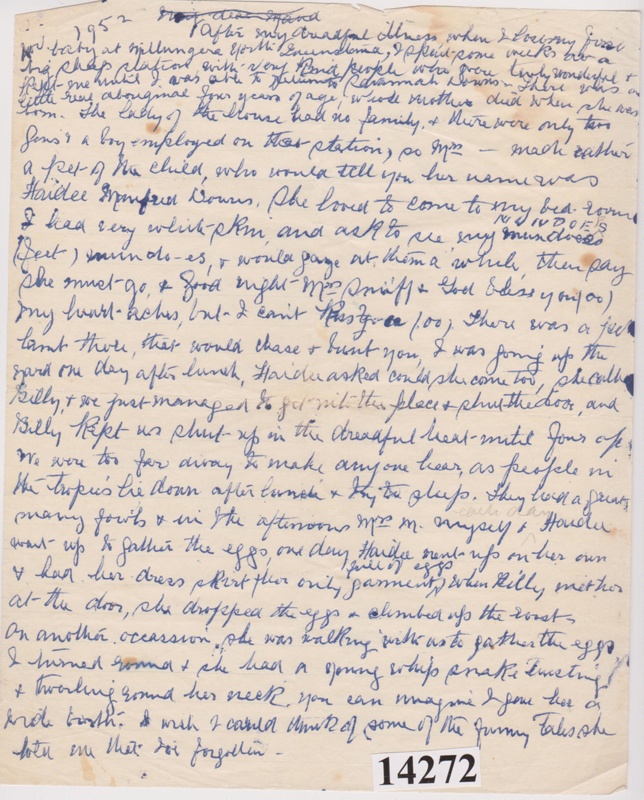 1952 My dear Maud
After my dreadful illness when I lost my first
baby at Millungera North Queensland, I spent some weeks on a
big sheep station with very kind people who were truly wonderful &
kept me until I was able to return to Savannah Downs. There was a
little real aboriginal four years of age, whose mother died when she was
born. The Lady of the house had no family, & there were only two
gins & a boy employed on that station, so Mrs — made rather
a pet of the child, who would tell you her name was
Haidee Downs. She loved to come to my bed room
MUNDOES
I had very white skin, and ask to see, my mundoes
(feet) mun-do-es, & would gaze at them a while, then say
she must go, & Good night Mrs & God bless you (oo)
my heart aches, but I can't Kiss You (oo). There was a pet
lamb there, that would chase & bunt you, I was going up the
yard one day after lunch, Haidee asked could she come too, she called
Billy, & we just managed to get into the place & shut the door, and
Billy Kept us shut up in the dreadful heat until four o'c
we were too far away to make anyone hear, as people in
the tropics lie down after lunch & try to sleep. They had a great
each day
many fowls & in the afternoons Mrs M. myself & Haidee
went up to gather the eggs, one day Haidee went up on her own
full of eggs
& had her dress skirt (her only garment) when Billy met her
at the door, she dropped the eggs & climbed up the roost.
On another occassion, she was walking with us to gather the eggs
I turned round & she had a young whip snake twisting
& twirling round her neck. you can imagine I gave her a
wide birth. I wish I could think of some of the funny tales she
told me that I've forgotten —
14272